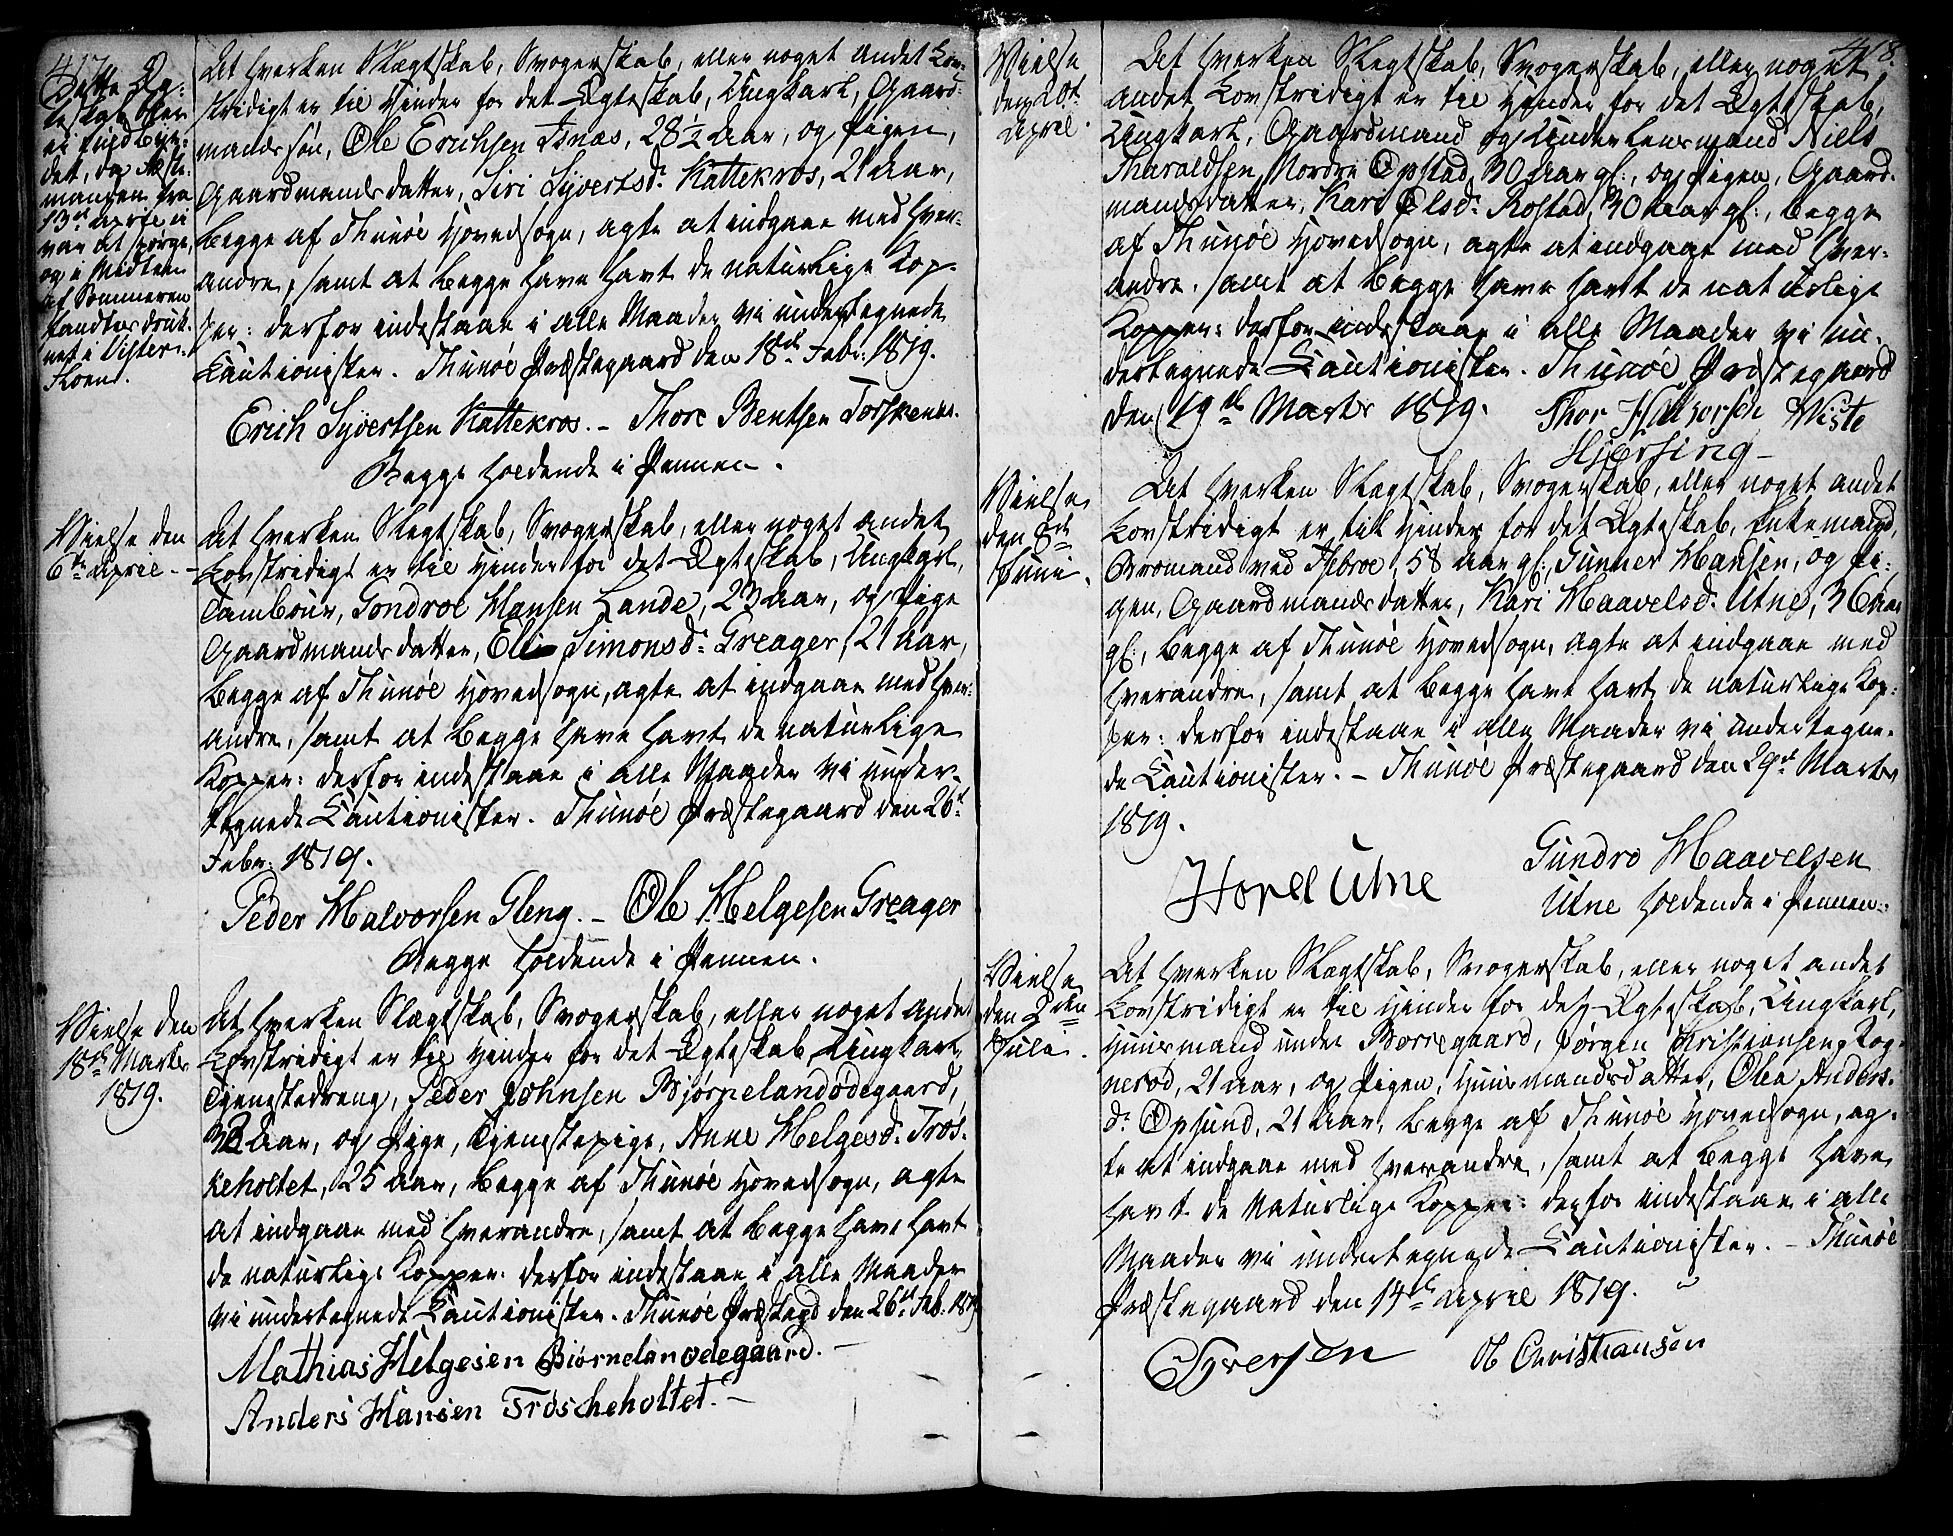 417.
Dette Æg-
teskab blev
ei fuldbyr-
det, da Æste-
manden fra
13de april ei
var at spørge,
og i Midten
af Sommeren
fandtes druk-
net i Vister-
floen.
At hverken Slægtskab, Svogerskab, eller noget andet Lov-
stridigt er til Hinder for det Ægteskab, Ungkarl, Gaard-
mandssøn, Ole Erichsen Isnæs, 28½ Aar, og Pigen,
Gaardmandsdatter, Siri Syvertsd: Kattekros, 21 Aar,
begge af Thunøe Hovedsogn, agte at indgaae med hver-
andre, samt at begge have havt de naturlige Kop-
per: derfor indestaae i alle Maader vi undertegnede
Cautionister. Thunøe Præstegaard den 18de Febr: 1819.
Erich Syvertsen Kattekros. – Thore Bentsen Torskenes.
Begge holdende i Pennen.
Vielse den
6te April. –
At hverken Slægtskab, Svogerskab, eller noget andet
Lovstridigt er til Hinder for det Ægteskab, Ungkarl,
Tambour, Gondroe Hansen Lande, 23 Aar, og Pige
Gaardmandsdatter, Eli Simonsd: Greager, 21 Aar,
begge af Thunøe Hovedsogn, agte at indgaae med hver-
andre, samt at begge have havt de naturlige
Kopper: derfor indestaae i alle Maader vi under-
tegnede Cautionister. Thunøe Præstegaard den 26d
Febr: 1819.
Peder Halvorsen Gleng. – Ole Helgesen Greager
Begge holdende i Pennen.
Vielse den
18de Marts
1819.
At hverken Slægtskab, Svogerskab, eller noget andet
Lovstridigt er til Hinder for det Ægteskab Ungkarl,
Tjenestedreng, Peder Johnsen Bjørnelandødegaard,
Aar, og Pige, Tjenestepige, Anne Helgesd: Trøs-
keholtet, 25 Aar, begge af Thunøe Hovedsogn, agte
at indgaae med hverandre, samt at begge have havt
de naturlige Kopper: derfor indestaae i alle Maader
vi undertegnede Cautionister. Thunøe Præstegd den 26d Feb. 1819
Mathias Helgesen Biørnelanodegaard. –
Anders Hansen Trøscheholtet. –
418.
Vielse
den 20d
April.
At hverken Slegtskab, Svogerskab, eller noget
andet Lovstridigt er til Hinder for det Ægteskab,
Ungkarl, Gaardmand og Underlensmand Niels
Tharaldsen Nordre Opstad, 30 Aar gl:, og Pigen, Gaard-
mandsdatter, Kari Olsd: Rostad, 30 Aar gl:, begge
af Thunøe Hovedsogn, agte at indgaae med hver-
andre, samt at begge have havt de naturlige
Kopper: derfor indestaae i alle Maader vi un-
dertegnede Cautionister. Thunøe Præstegaard
den 19de Marts 1819. Thor Halvorsen Viste
Hjersing –
Vielse
den 8de
Juni.
At hverken Slegtskab, Svogerskab, eller noget andet
Lovstridigt er til Hinder for det Ægteskab, Enkemand,
Bromand ved Isebroe, 58 aar gl:, Gunner Hansen, og Pi-
gen, Gaardmandsdatter, Kari Haavelsd: Utne, 36 Aar
gl:, begge af Thunøe Hovedsogn, agte at indgaae med
hverandre, samt at begge have havt de naturlige Kop-
per: derfor indestaae i alle Maader vi undertegne-
de Cautionister. – Thunøe Præstegaard den 29d Marts
1819.
Hovel Utne
Gundro Haavelsen
Utne holdende i Pennen.
Vielse
den 2den
Juli.
At hverken Slægtskab, Svogerskab, eller noget andet
Lovstridigt er til Hinder for det Ægteskab, Ungkarl,
Huusmand under Borregaard, Jørgen Kristiansen Rog-
nerød, 21 Aar, og Pigen, Huusmandsdatter, Olea Anders-
d: Opsund, 21 Aar, begge af Thunøe Hovedsogn, ag-
te at indgaae med hverandre, samt at begge have
havt de Naturlige Kopper: derfor indestaae i alle
Maader vi undertegnede Cautionister. – Thunøe
Præstegaard den 14de April 1819.
Syversen O Christiansen